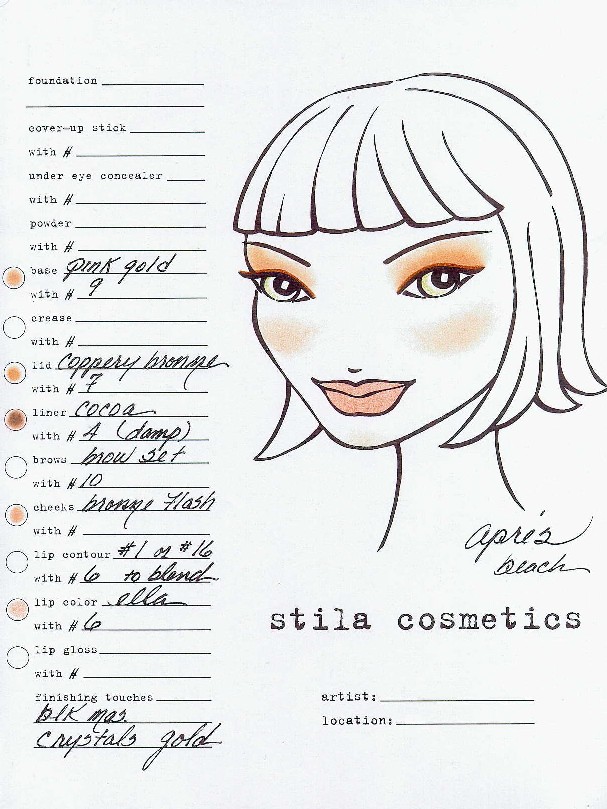 foundation
cover-up stick
with #
under eye concealer
with #
powder
with #
base pink gold
with # 9
crease
with #
lid coppery bronze
with # 7
liner cocoa
with # 4 (damp)
brows brow set
with # 10
cheeks bronze flash
with #
lip contour #1 or #16
with # 6 to blend
lip color ella
with # 6
lip gloss
with #
finishing touches
blk mas.
crystals gold
après
beach
stila cosmetics
artist:
location: